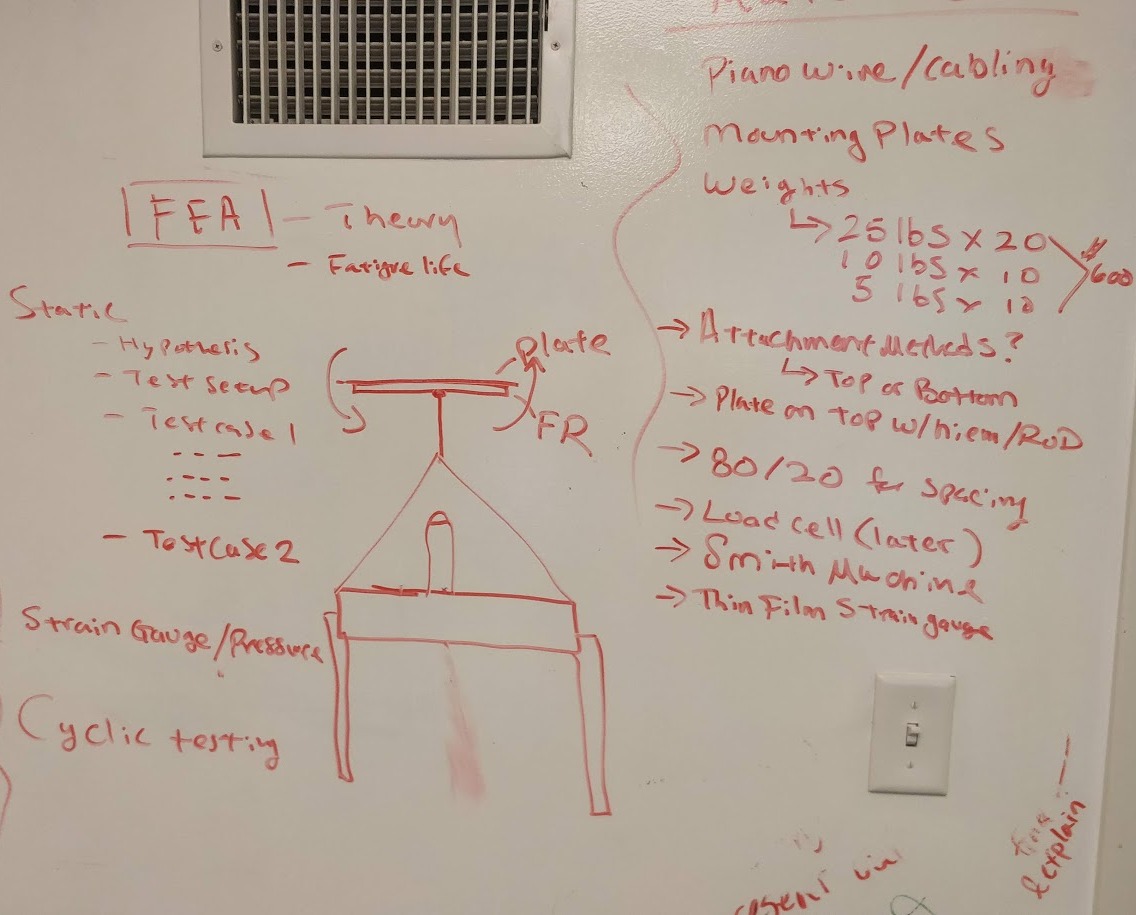 FEA - Theory
- Fatigue life
Static
- Hypothesis
- Test setup
- Test case 1
- Test Case 2
Strain Gauge/Pressure
Cyclic testing
Plate
FR
Piano wire/cabling
Mounting Plates
Weights
↳ 25 lbs x 20
10 lbs x 10
5 lbs x 10
$600
→ Attachment Methods?
↳ Top or Bottom
→ Plate on top w/hiem/ROD
→ 80/20 for spacing
→ Load cell (later)
→ Smith Machine
→ Thin Film Strain gauge
& explain